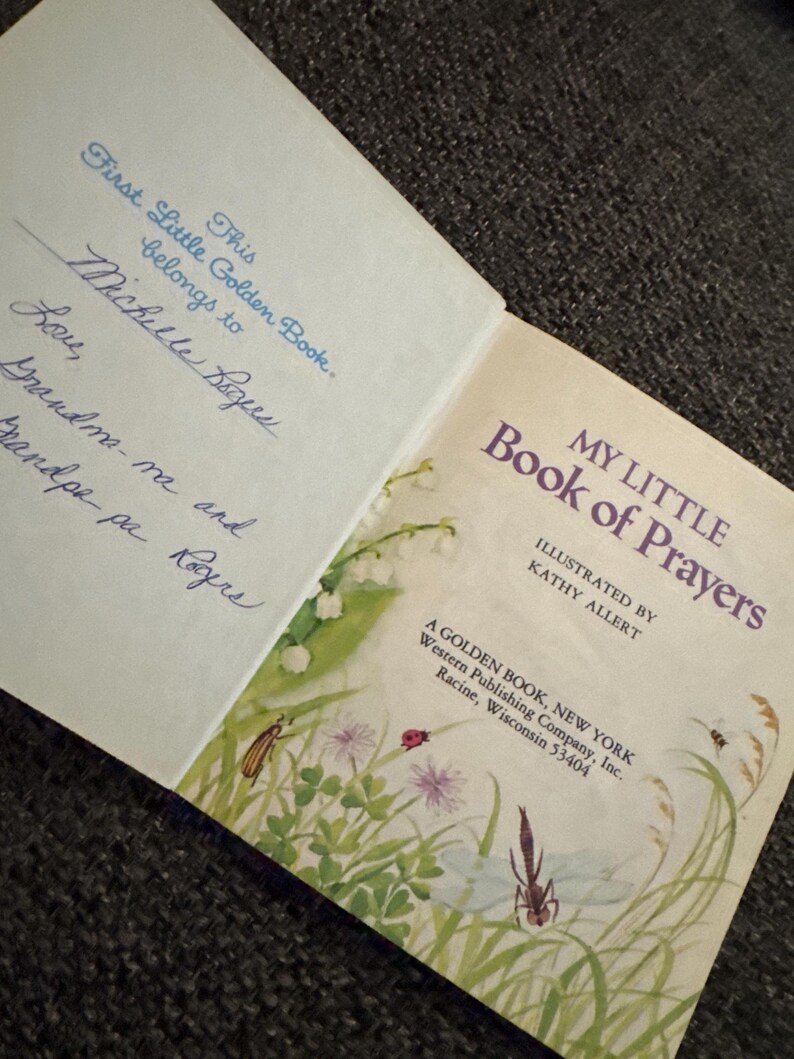 This
First Little Golden Book®
belongs to
Michelle Rogers
Love,
Grandma-ma and
Grandpa-pa Rogers
MY LITTLE
Book of Prayers
ILLUSTRATED BY
KATHY ALLERT
A GOLDEN BOOK, NEW YORK
Western Publishing Company, Inc.
Racine, Wisconsin 53404